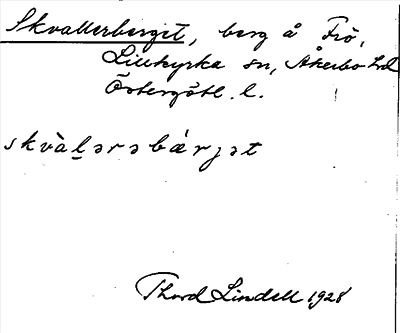 Skvallerberget, berg å Frö,
Lillkyrka sn, Åkerbo hd
Östergötl. l.
skvàlərəbærjət
Thord Lindell 1928